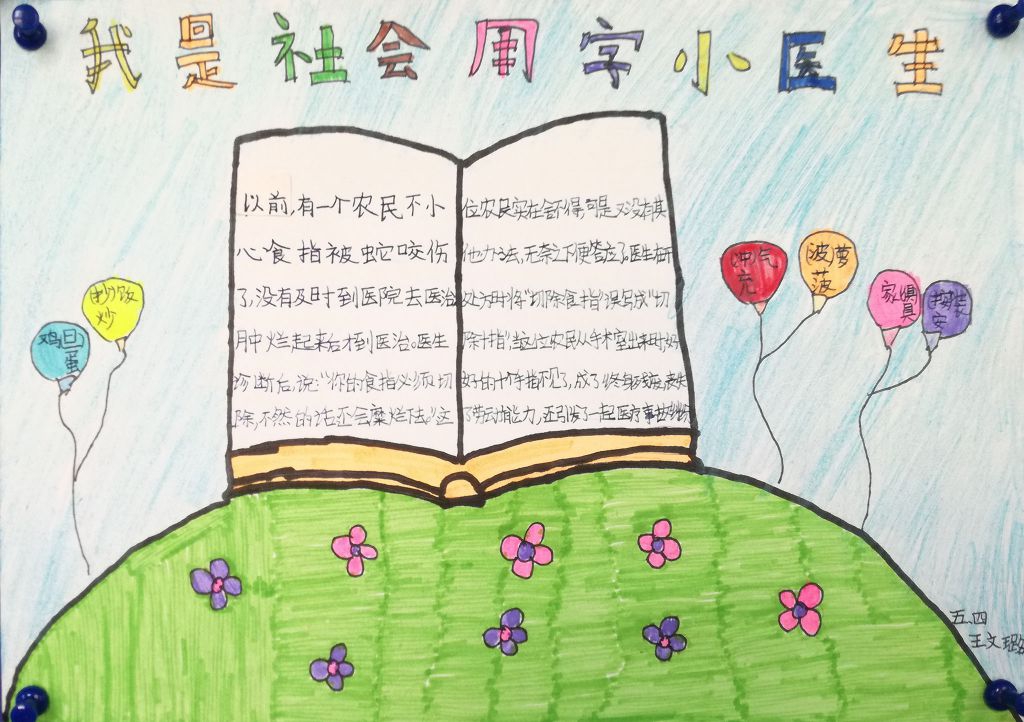 我是社会用字小医生
以前,有一个农民不小
心食指被蛇咬伤
了,没有及时到医院去医治
肿烂起来后才到医治。医生
诊断后,说:“你的食指必须切
除,不然的话还会糜烂下去。”这
位农民实在舍不得,可是又没有其
他办法,无奈之下便答应了。医生在开
处方时将“切除食指”误写成“切
除十指”当这位农民从手术室出来时,好
好的十个手指不见了,成了终身残废,丧失
了劳动能力,还引发了一起医疗事故
鸡旦
蛋
抄饭
炒
冲气
充
波萝
菠
家惧
具
按装
安
五.四
王文